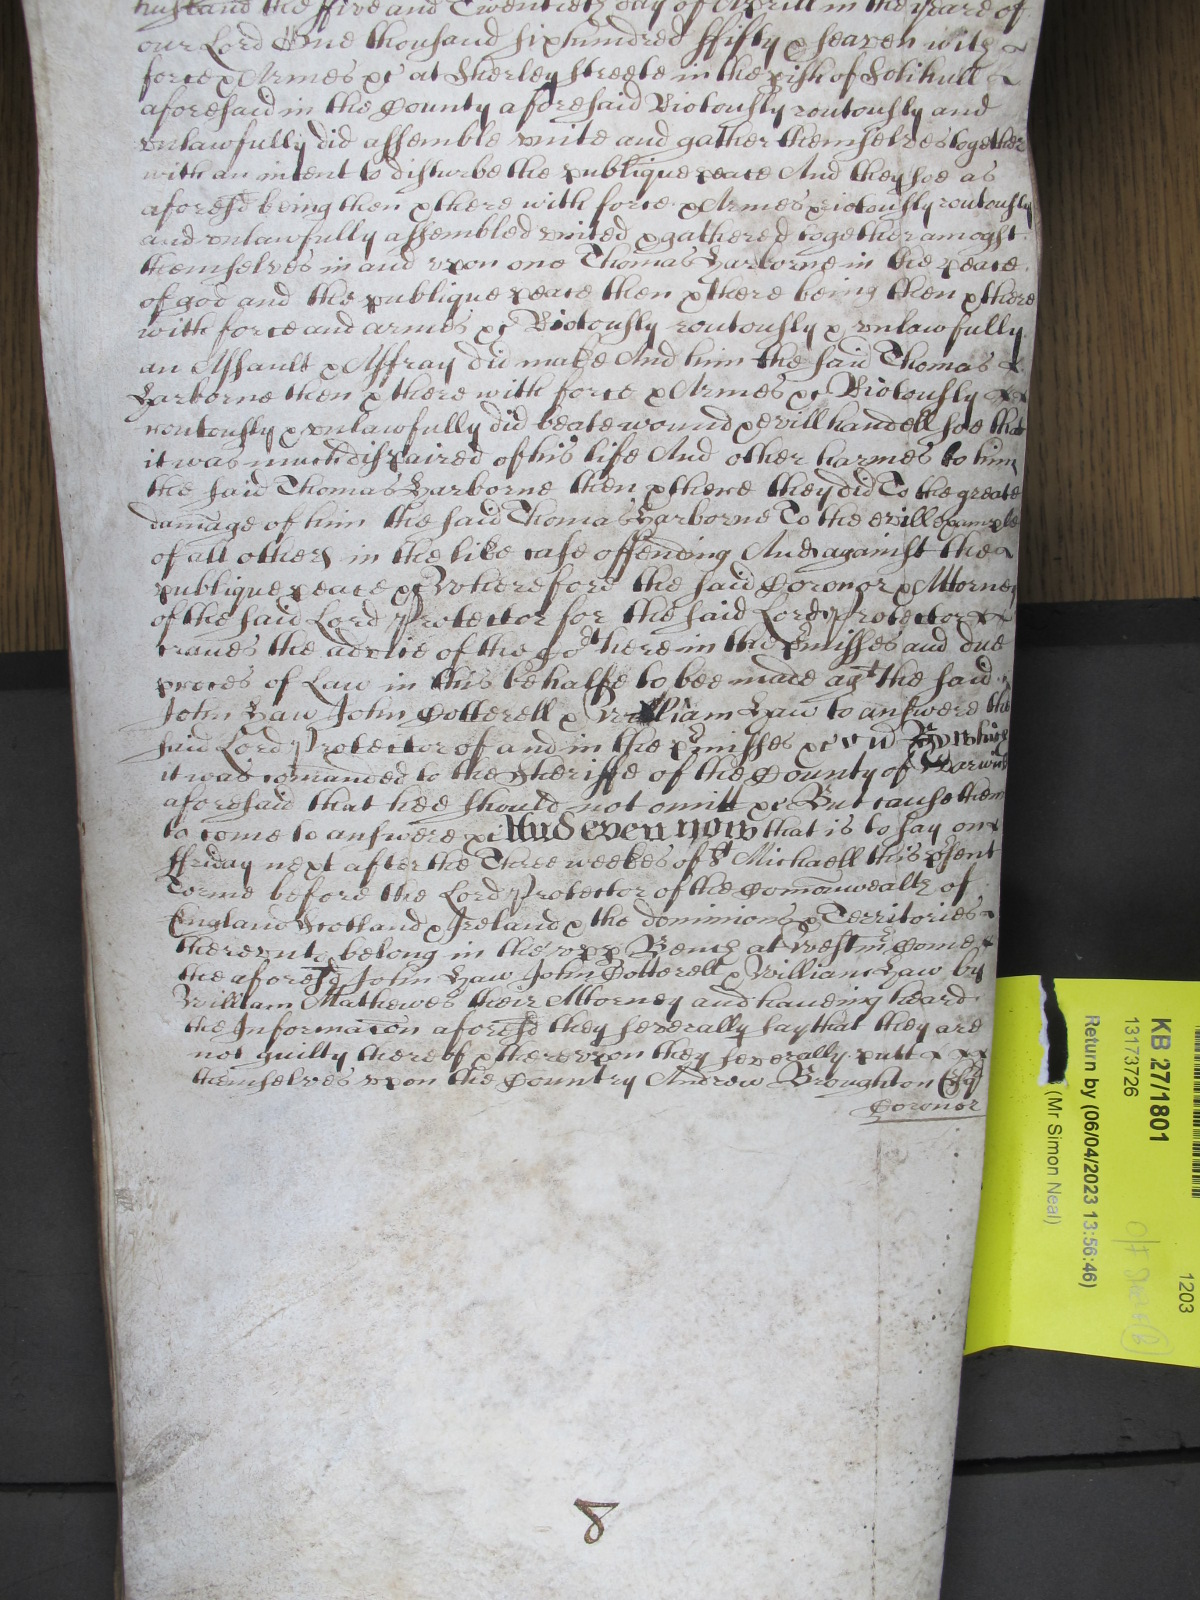 husband the ffive and Twentieth day of Aprill in the yeare of
our Lord One thousand six hundred ffifty & seaven with
force & Armes &c at Sherley streete in the pish of Solihull
aforesaid in the County aforesaid Riotously routously and
vnlawfully did assemble vnite and gather themselves together
with an intent to disturbe the publique peace And they soe as
aforesd being then & there with force & Armes riotously routously
and vnlawfully assembled vnited & gathered together amogst
themselves in and vpon one Thomas Harborne in the peace
of god and the publique peace then & there being then & there
with force and armes &c Riotously routously & vnlawfully
an Assault & Affray did make And him the said Thomas
Harborne then & there with force & Armes &c Riotously
routously & vnlawfully did beate wound & evill handell soe that
it was much dispaired of his life And other harmes to him
the said Thomas Harborne then & there they did To the greate
damage of him the said Thomas Harborne To the evill example
of all others in the like case offending And against the
publique peace &c Wherefore the said Coronor & Attorney
of the said Lord Protector for the said Lord Protector
craues the advice of the Cot here in the pmisses and due
proces of Law in this behalfe to bee made agt the said
John Haw John Cotterell & William Haw to answere the
said Lord Protector of and in the pmisses &c By which
it was comanded to the Sheriffe of the County of Warwick
aforesaid that hee should not omitt &c But cause them
to come to answere &c And even now that is to say on
ffriday next after the Three weekes of St Michaell this psent
Terme before the Lord Protector of the Comonwealth of
England Scotland & Ireland & the dominions & Territories
therevnto belong in the vpp Bench at Westm Come
the aforesd John Haw John Cotterell & William Haw by
William Mathewes their Attorney and haueing heard
the Informacon aforesd they severally say that they are
not guilty thereof & therevpon they severally putt
themselves vpon the Country Andrew Broughton Esq
Coronor
8
KB 27/1801
13173726
Return by (06/04/2023 13:56:46)
(Mr Simon Neal)
1203